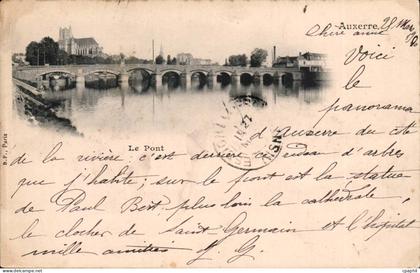 Auxerre, 25 Mars
Chère amie
Voici
le
panorama
Le Pont
B.F., Paris
d'Auxerre du côté
de la rivière c'est derrière ce rideau d'arbres
que j'habite ; sur le pont est la statue
de Paul Bert plus loin la cathédrale,
le clocher de Saint Germain et l'hôpital
mille amitiés